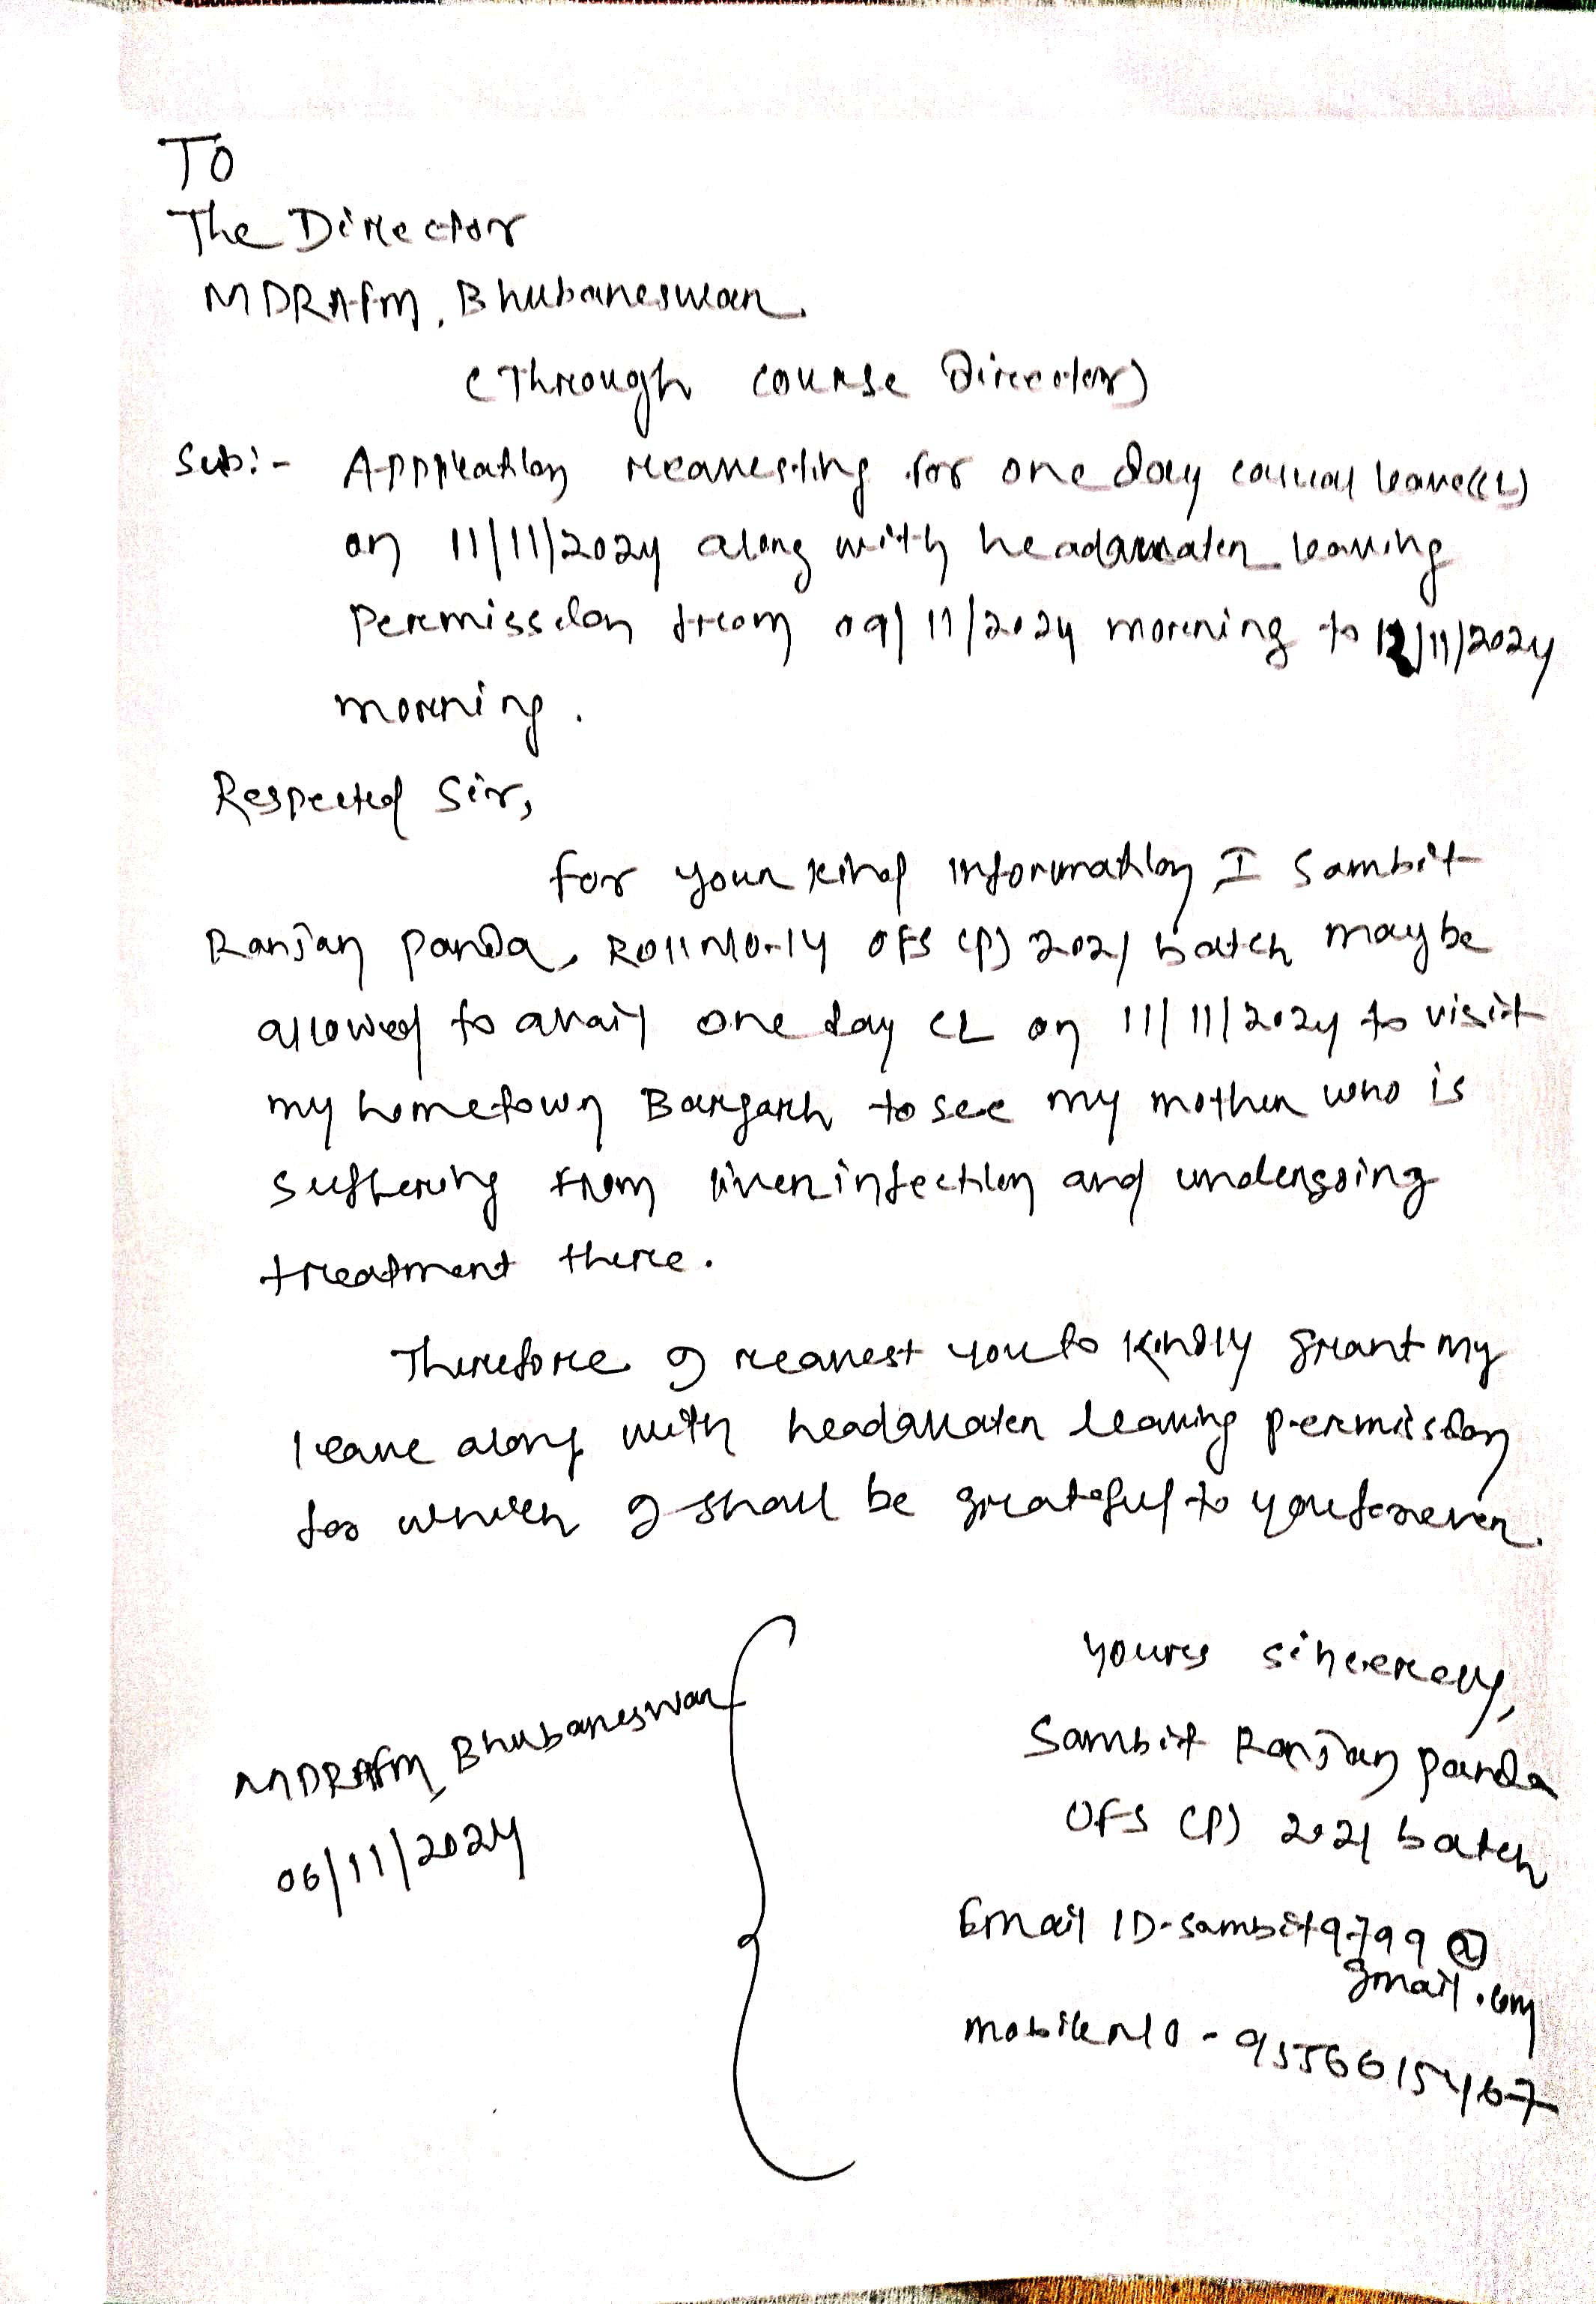 To
The Director
MDRAFM, Bhubaneswar
(Through course Director)
Sub:- Application requesting for one day casual leave(CL)
on 11/11/2024 along with headquarter leaving
permission from 09/11/2024 morning to 12/11/2024
morning.
Respected Sir,
For your kind information I Sambit
Ranjan Panda, Roll No-14 OFS (P) 2021 batch may be
allowed to avail one day CL on 11/11/2024 to visit
my hometown Bargarh to see my mother who is
suffering from liver infection and undergoing
treatment there.
Therefore I request you to kindly grant my
leave along with headquater leaving permission
for which I shall be grateful to you forever.
Yours sincerely,
Sambit Ranjan Panda
OFS (P) 2021 batch
Email ID-sambit9799@
gmail.com
Mobile No - 9556615467
MDRAFM, Bhubaneswar
06/11/2024